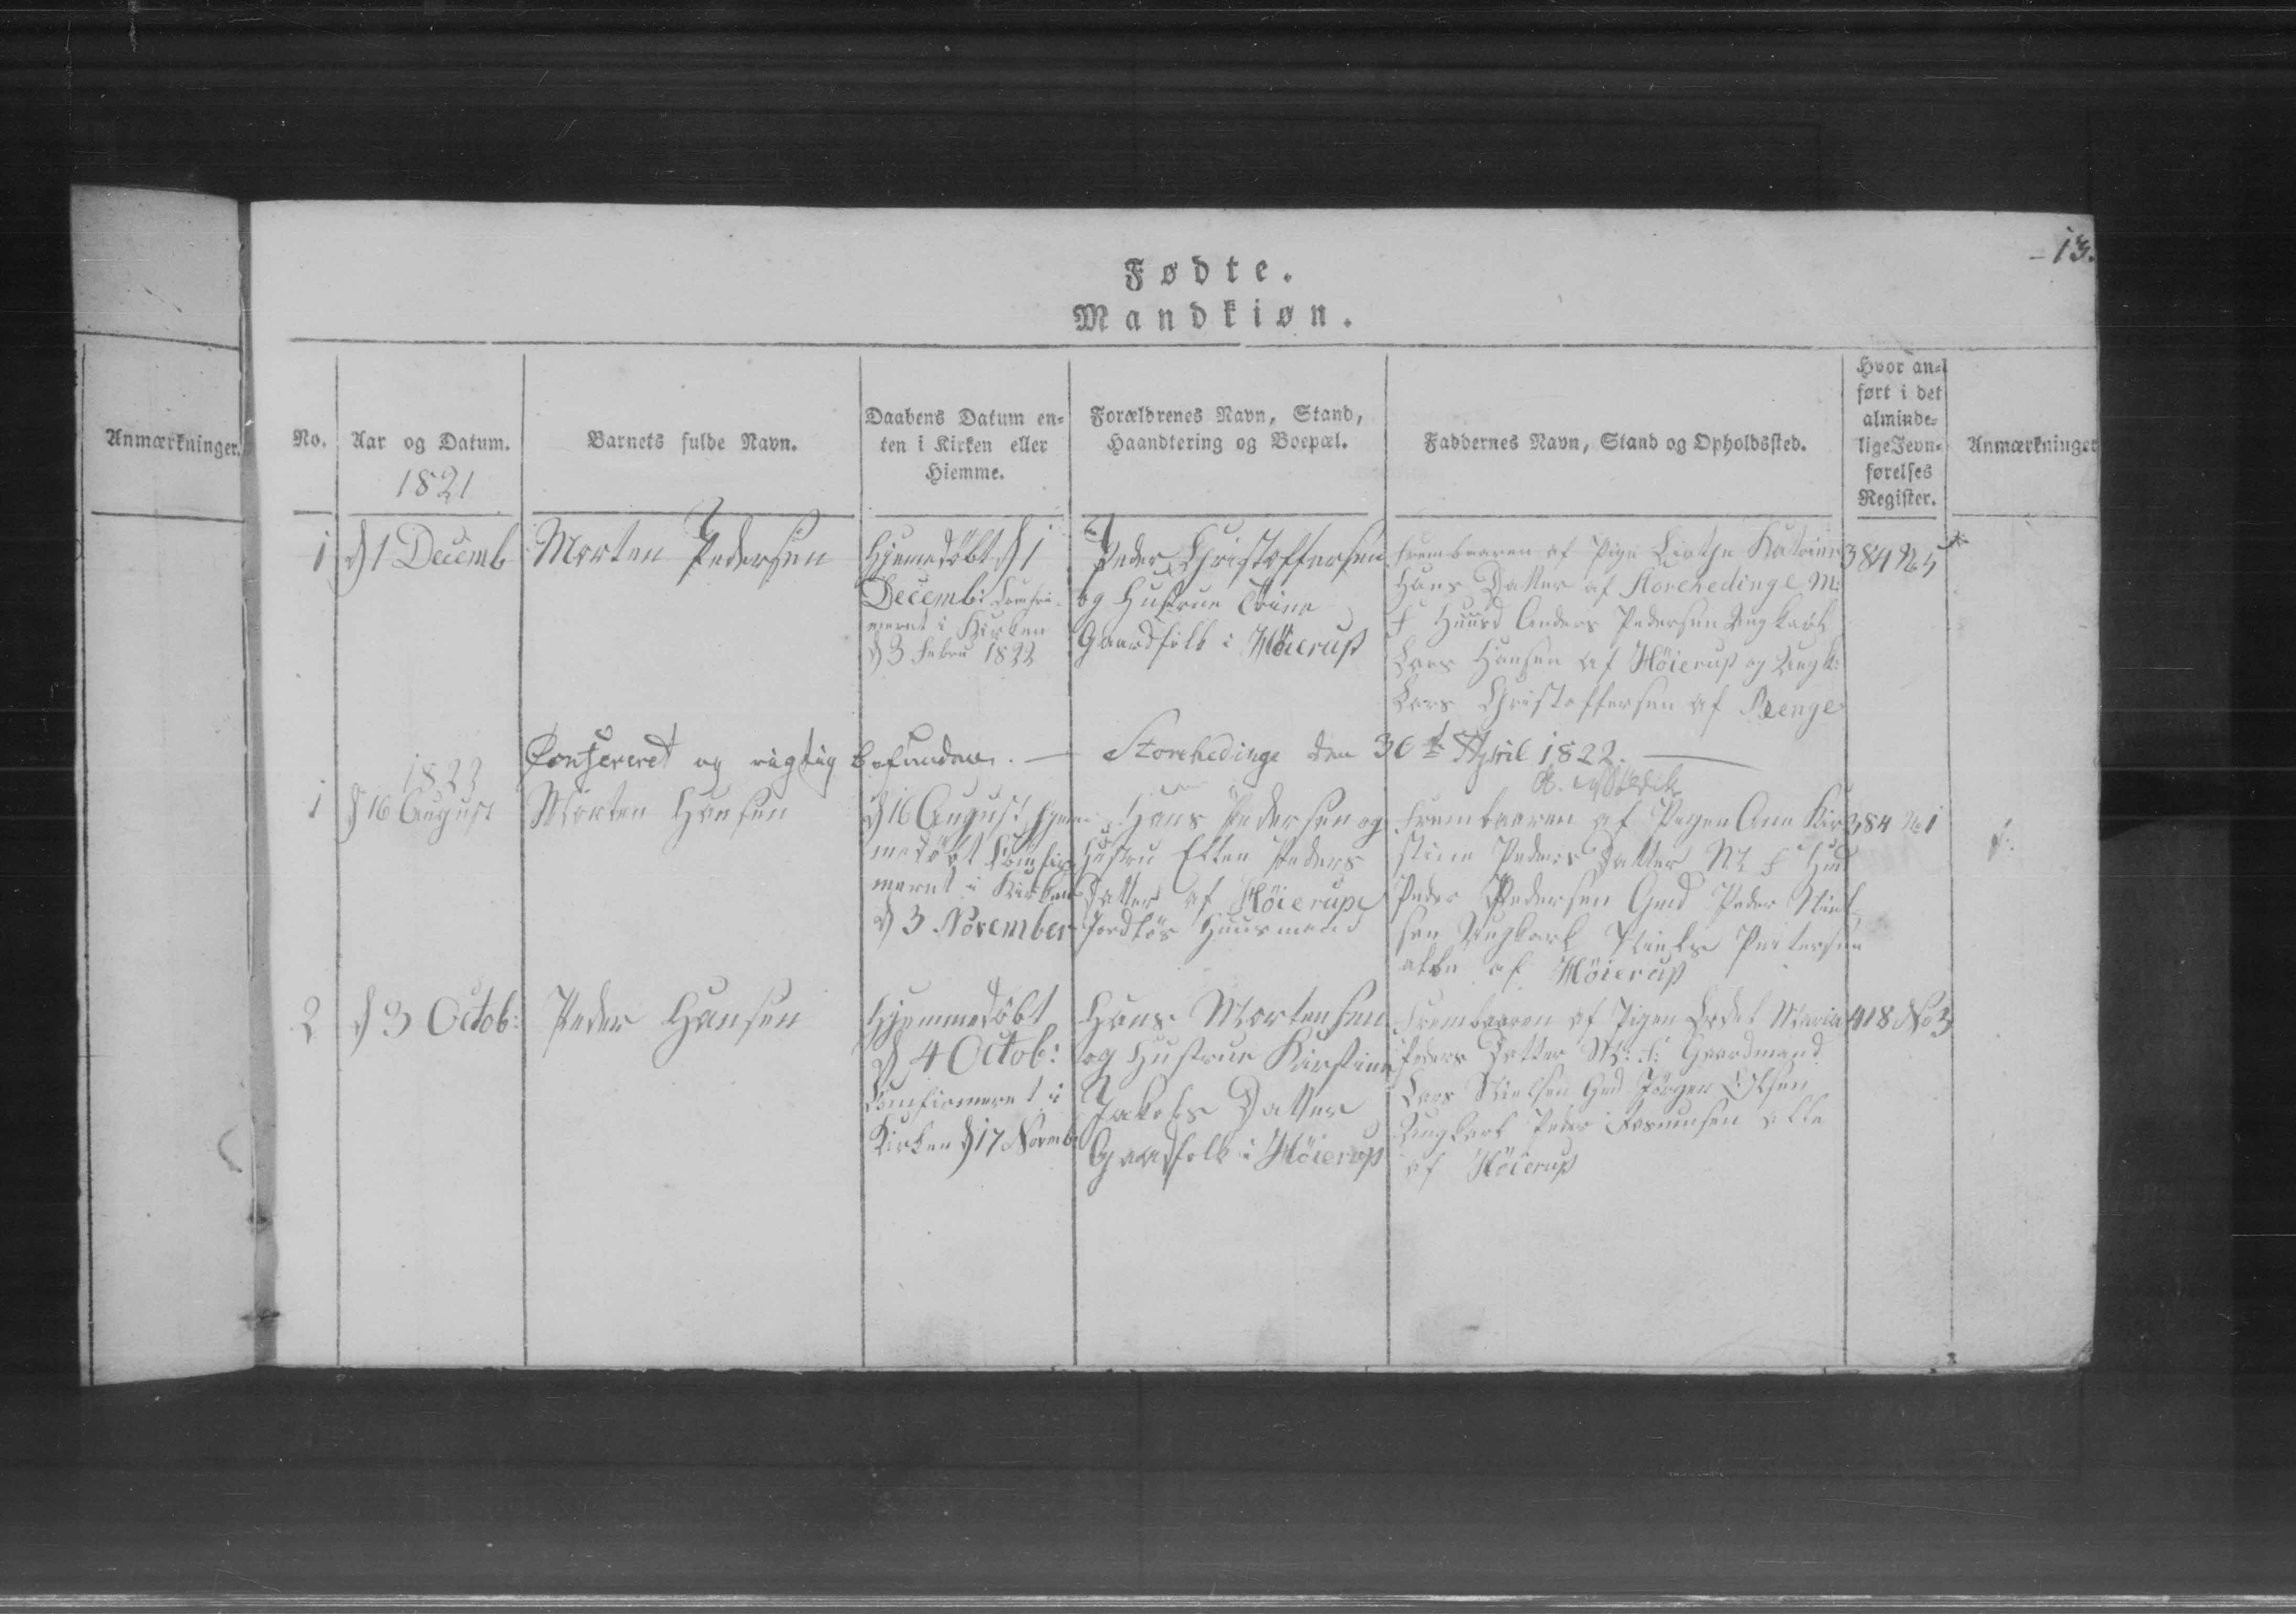 13.
Fødte.
Mandkiøn.
Anmærkninger.
No.
Aar og Datum.
1821
Barnets fulde Navn.
Daabens Datum en-
ten i Kirken eller
Hiemme.
Forældrenes Navn, Stand,
Haandtering og Boepæl.
Faddernes Navn, Stand og Opholdssted.
Hvor an-
ført i det
alminde-
lige Jevn-
førelses
Register.
Anmærkninger
1
d 1 Decemb
Morten Pedersen
Hjemedöbt d 1
Decemb:
meret i Kirken
d 3 Febru 1822
Peder Christoffersen
og Hustrue Trine
Gaardfolk i Höierup
frembaaren af Pige Katrine
Hans Datter af Storehedinge M:
F Huusd Anders Pedersen Ungkarl
Lars Hansen af Höierup og Ungk:
Lars Christoffersen af Renge
384 No 5
Confereret og rigtig befunden. — Storehedinge den 30 April 1822. —
1822
1
d 16 August
Morten Hansen
d 16 August Hjem-
medöbt Comfir-
meret i Kirken
d 3 November
Hans Pedersen og
Hustru Ellen Peders
Datter af Höierup
Jordlös Huusmand
Frembaaren af Pigen Ane Kir
stine Peders Datter M: F Hud
Peder Pedersen Gmd Peder Niel-
sen Ungkarl Niels Peitersen
alle af Höierup
384 No 1
2
d 3 Octob:
Peder Hansen
Hjemmedöbt
d 4 Octob:
Comfirmeret i
Kirken d 17 Novemb
Hans Mortensen
og Hustrue Kirstine
Jakobs Datter
Gaardfolk i Höierup
Frembaaren af Pigen Maria
Peders Datter M: F: Gaardmand
Lars Nielsen Gmd Jörgen Olsen
Ungkarl Peder Rasmusen alle
af Höierup
418 No 3